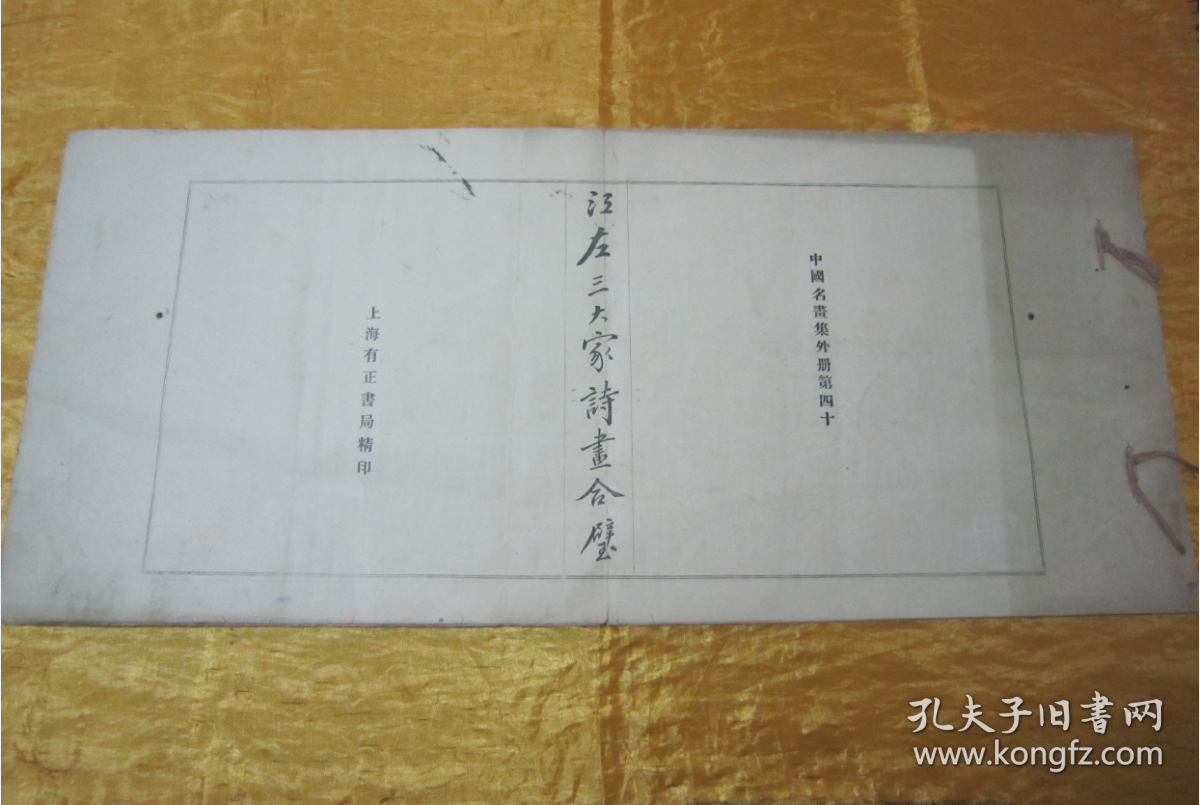 中國名畫集外册第四十
江左三大家詩畫合璧
上海有正書局精印
孔夫子旧书网
www.kongfz.com